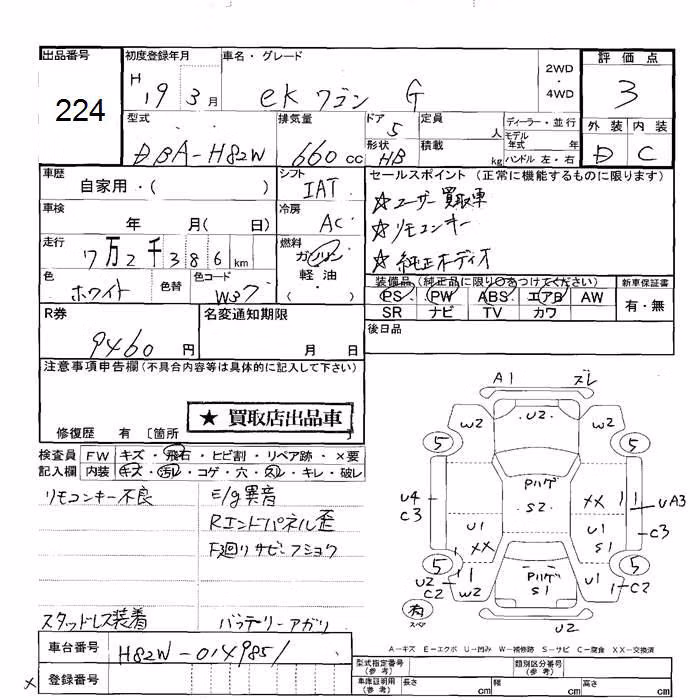 出品番号 初度登録年月 車名・グレード 評価点
224 H 19 3月 ekワゴン G 2WD・4WD 3
型式 排気量 ドア 定員 ディーラー・並行 外装 内装
DBA-H82W 660cc 5 人 モデル年式 年 D C
形状 HB 積載 kg ハンドル 左・右
車歴 シフト セールスポイント(正常に機能するものに限ります)
自家用・( ) IAT ☆ユーザー買取車
車検 冷房 ☆リモコンキー
年 月( 日) AC ☆純正オーディオ
走行 燃料
7万2千386km ガソリン
色 色替 色コード 軽油 装備品(純正品に限り○をつけてください) 新車保証書
ホワイト W37 ( ) PS PW ABS エアB AW 有・無
R券 名変通知期限 SR ナビ TV カワ
9460円 月 日 後日品
注意事項申告欄(不具合内容等は具体的に記入して下さい)
★ 買取店出品車
修復歴 有 〔箇所
検査員 FW キズ・飛石・ヒビ割・リペア跡・×要
記入欄 内装 キズ・汚レ・コゲ・穴・スレ・キレ・破レ
リモコンキー不良 E/g異音
Rエンドパネル歪
F廻リサビ・フショク
スタッドレス装着 バッテリーアガリ
車台番号 H82W-0149851
× 登録番号
A1 ズレ
U2
W2 W2
5 5
Pハゲ
S2
U4 XX UA3
C3 U1 U1 C3
XX S1
5 5
U2 Pハゲ U1 C2
C2 W2 S1
有 スペア
U2
A-キズ E-エクボ U-凹み W-補修跡 S-サビ C-腐食 XX-交換済
型式指定番号(参考) 類別区分番号(参考)
車庫証明用(参考) 長さ cm 幅 cm 高さ cm